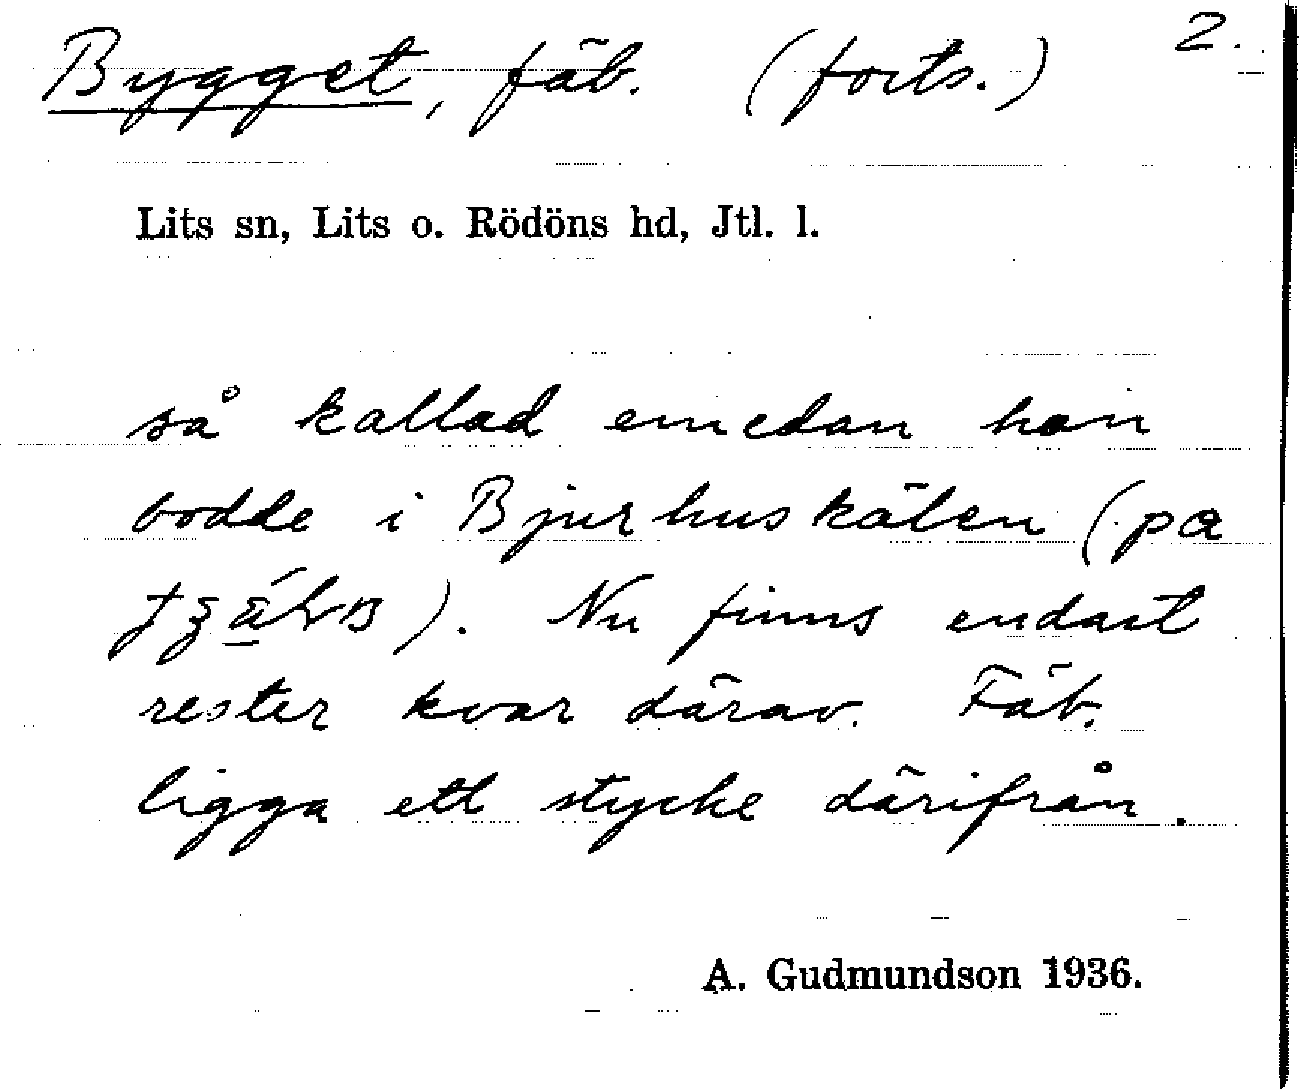 Bygget, fäb. (forts.) 2.
Lits sn, Lits o. Rödöns hd, Jtl. l.
så kallad emedan han
bodde i Bjurhuskälen (pa
). Nu finns endast
rester kvar därav. Fäb.
ligga ett stycke därifrån.
A. Gudmundson 1936.